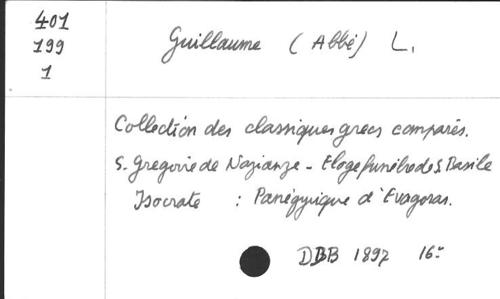 401
199
1
Guillaume (Abbé) L.
Collection des classiques grecs comparés.
S. Gregoire de Nazianze - Eloge funèbre de S Basile
Isocrate : Panégyrique d'Evagoras.
DBB 1897 16º